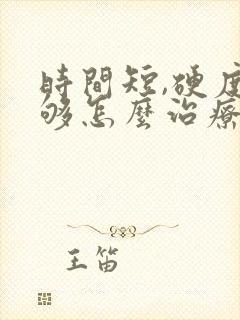 時間短,硬度
够怎麼治療
王笛